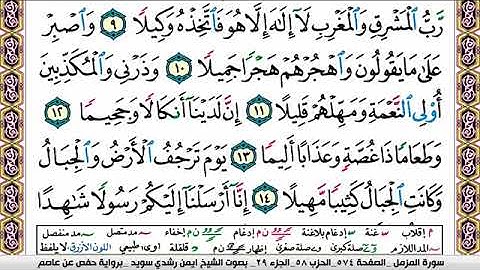 رَّبُّ ٱلْمَشْرِقِ وَٱلْمَغْرِبِ لَآ إِلَٰهَ إِلَّا هُوَ فَٱتَّخِذْهُ وَكِيلًا ٩ وَٱصْبِرْ
عَلَىٰ مَا يَقُولُونَ وَٱهْجُرْهُمْ هَجْرًا جَمِيلًا ١٠ وَذَرْنِى وَٱلْمُكَذِّبِينَ
أُو۟لِى ٱلنَّعْمَةِ وَمَهِّلْهُمْ قَلِيلًا ١١ إِنَّ لَدَيْنَآ أَنكَالًا وَجَحِيمًا ١٢
وَطَعَامًا ذَا غُصَّةٍ وَعَذَابًا أَلِيمًا ١٣ يَوْمَ تَرْجُفُ ٱلْأَرْضُ وَٱلْجِبَالُ
وَكَانَتِ ٱلْجِبَالُ كَثِيبًا مَّهِيلًا ١٤ إِنَّآ أَرْسَلْنَآ إِلَيْكُمْ رَسُولًا شَٰهِدًا
م إقلاب غنة إدغام بلاغنة إدغام إخفاء مد متصل مد منفصل
المد اللازم صلة كبرى وصلة صغرى إظهار قلقلة مد طبيعي اللون الأزرق لا يلفظ
سورة المزمل _ الصفحة ٥٧٤ _ الحزب ٥٨ _ الجزء ٢٩ _ بصوت الشيخ أيمن رشدي سويد _ برواية حفص عن عاصم